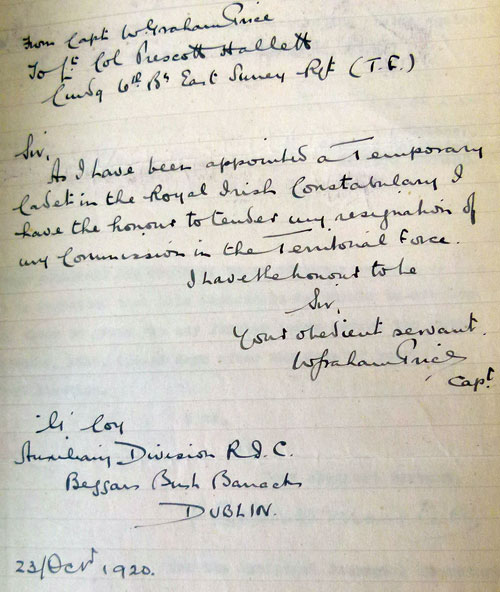 From Capt W. Graham Price
To Lt Col Prescott Hallett
Cmdg 6th Bn East Surrey Rgt (T.F.)
Sir,
As I have been appointed a Temporary
Cadet in the Royal Irish Constabulary I
have the honour to tender my resignation of
my Commission in the Territorial Force.
I have the honour to be
Sir,
Your obedient servant.
W Graham Price
Capt
Coy
Auxiliary Division R.I.C.
Beggars Bush Barracks
DUBLIN.
23/Oct 1920.